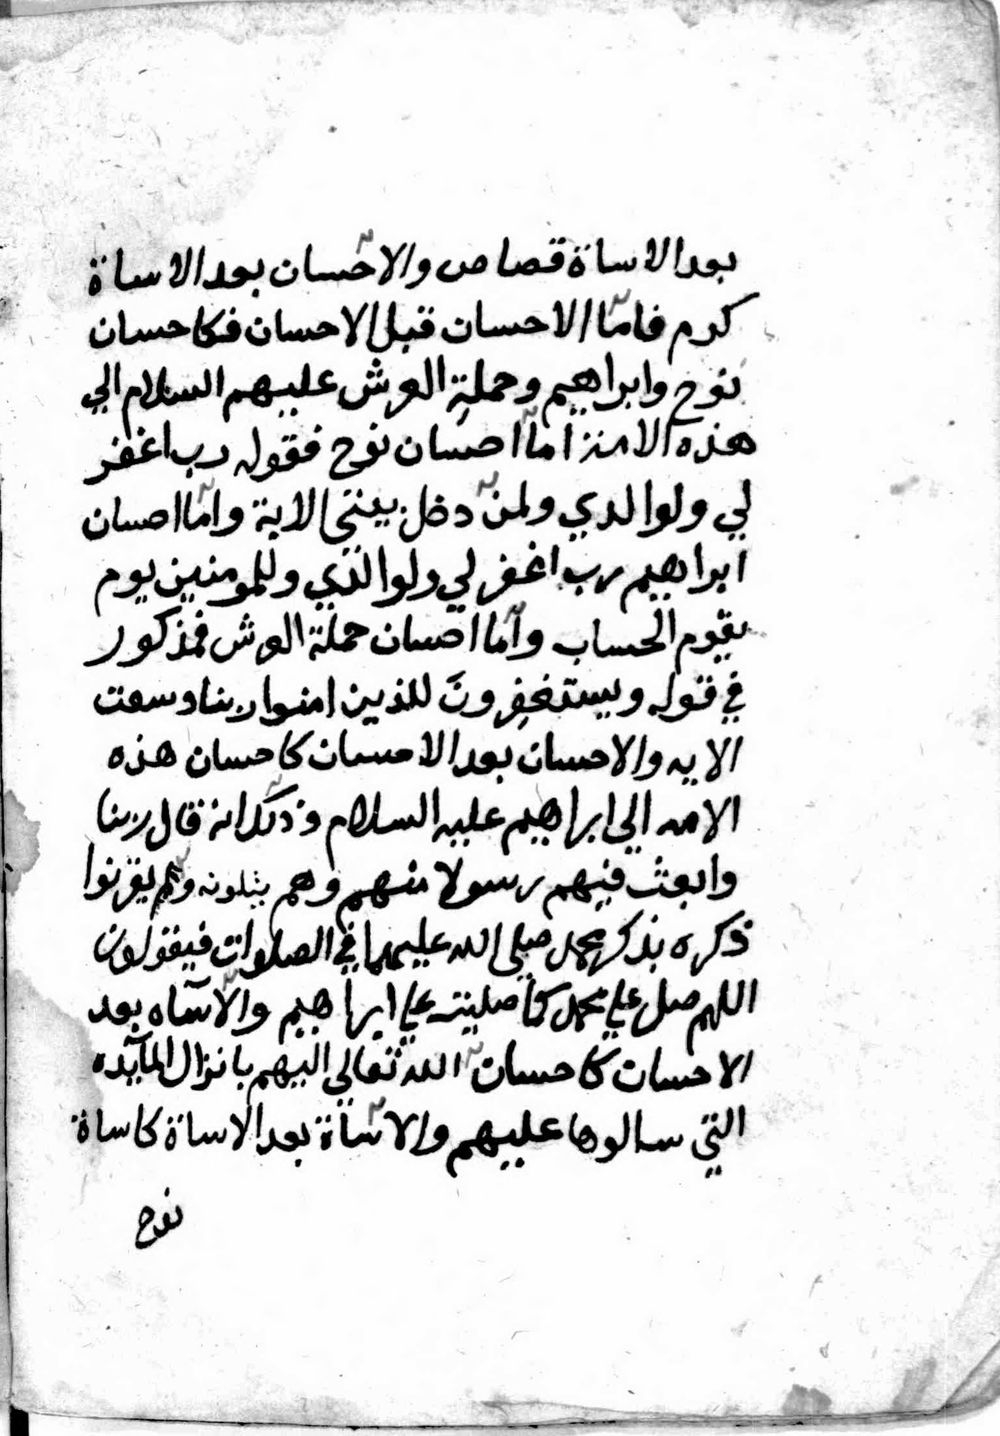 بعد الاساة قصاص والاحسان بعد الاساة
كرم فاما الاحسان قبل الاحسان فكاحسان
نوح وابراهيم وحملة العرش عليهم السلام الي
هذه الامة اما احسان نوح فقوله رب اغفر
لي ولوالدي ولمن دخل بيتي الاية واما احسان
ابراهيم رب اغفر لي ولوالدي وللمومنين يوم
يقوم الحساب واما احسان حملة العرش فمذكور
في قوله ويستغفرون للذين امنوا ربنا وسعت
الايه والاحسان بعد الاحسان كاحسان هذه
الامه الي ابراهيم عليه السلام وذلك انه قال ربنا
وابعث فيهم رسولا منهم وهم يقرنوا
ذكره بذكر محمد صلي الله عليهما في الصلوات فيقولون
اللهم صل علي محمد كما صليت علي ابراهيم والاساه بعد
الاحسان كاحسان الله تعالي اليهم بانزال المايده
التي سالوها عليهم والاساة بعد الاساة كاساة
نوح